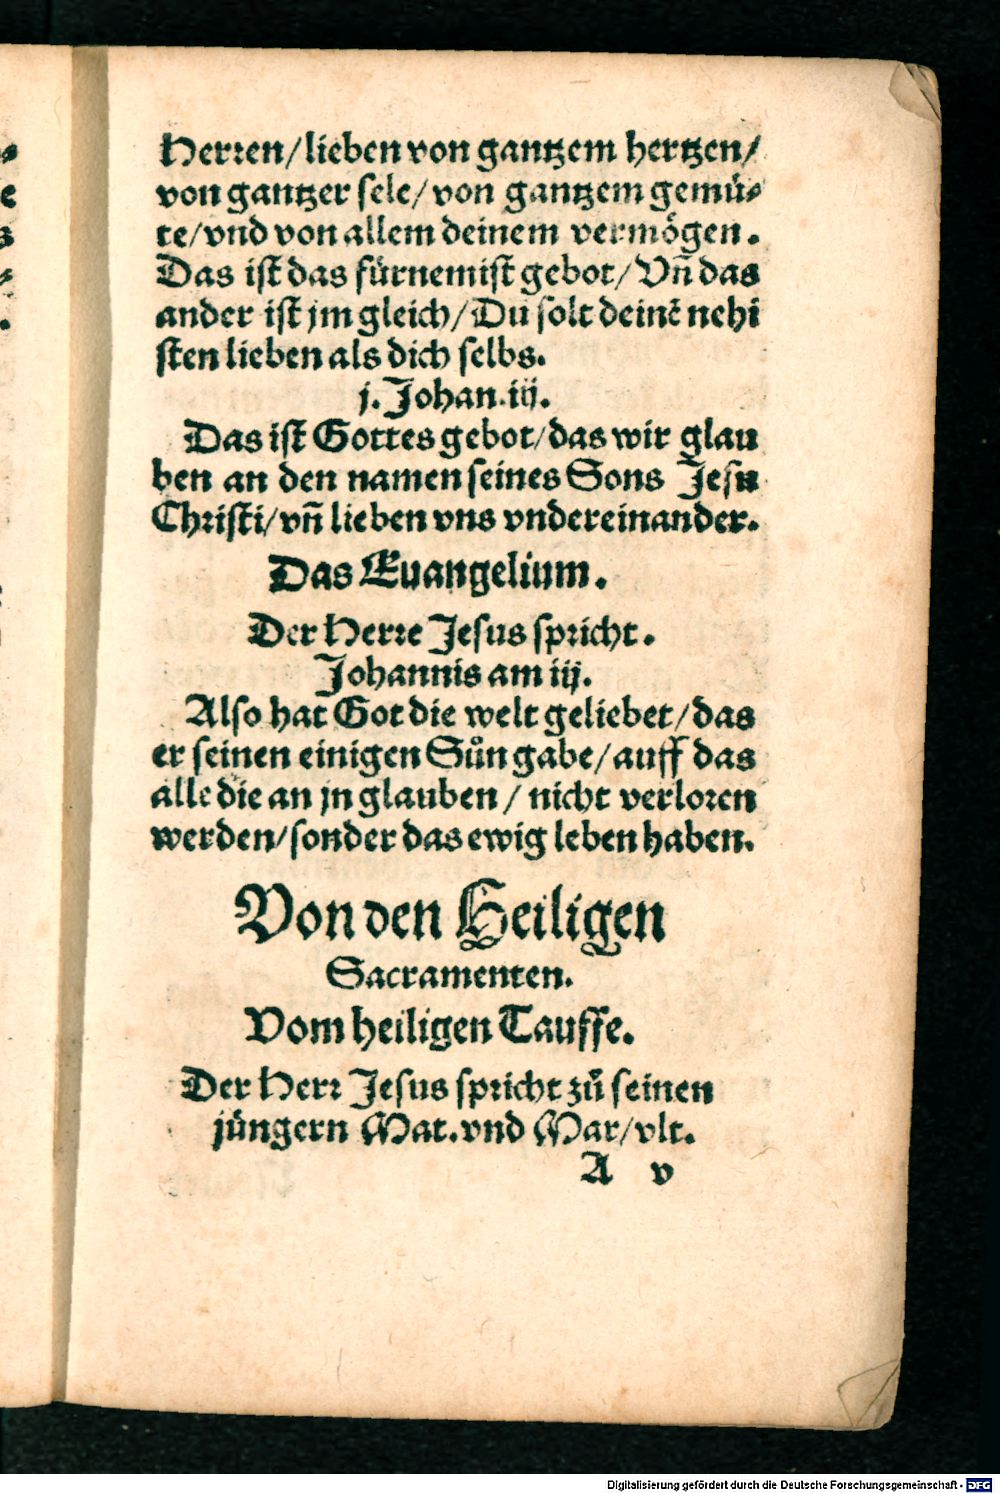 Herꝛen/lieben von gantzem hertzen/
von gantzer sele/von gantzem gemuͤ⸗
te/vnd von allem deinem vermoͤgen.
Das ist das fuͤrnemist gebot/Vñ das
ander ist jm gleich/Du solt deinẽ nehi
sten lieben als dich selbs.
j. Johan.iij.
Das ist Gottes gebot/das wir glau
ben an den namen seines Sons Jesu
Chꝛisti/vñ lieben vns vndereinander.
Das Euangelium.
Der Herꝛe Jesus spꝛicht.
Johannis am iij.
Also hat Got die welt geliebet/das
er seinen einigen Sůn gabe/auff das
alle die an jn glauben/ nicht verloꝛen
werden/sonder das ewig leben haben.
Von den Heiligen
Sacramenten.
Vom heiligen Tauffe.
Der Herꝛ Jesus spꝛicht zů seinen
juͤngern Mat.vnd Mar/vlt.
A v
Digitalisierung gefördert durch die Deutsche Forschungsgemeinschaft - DFG